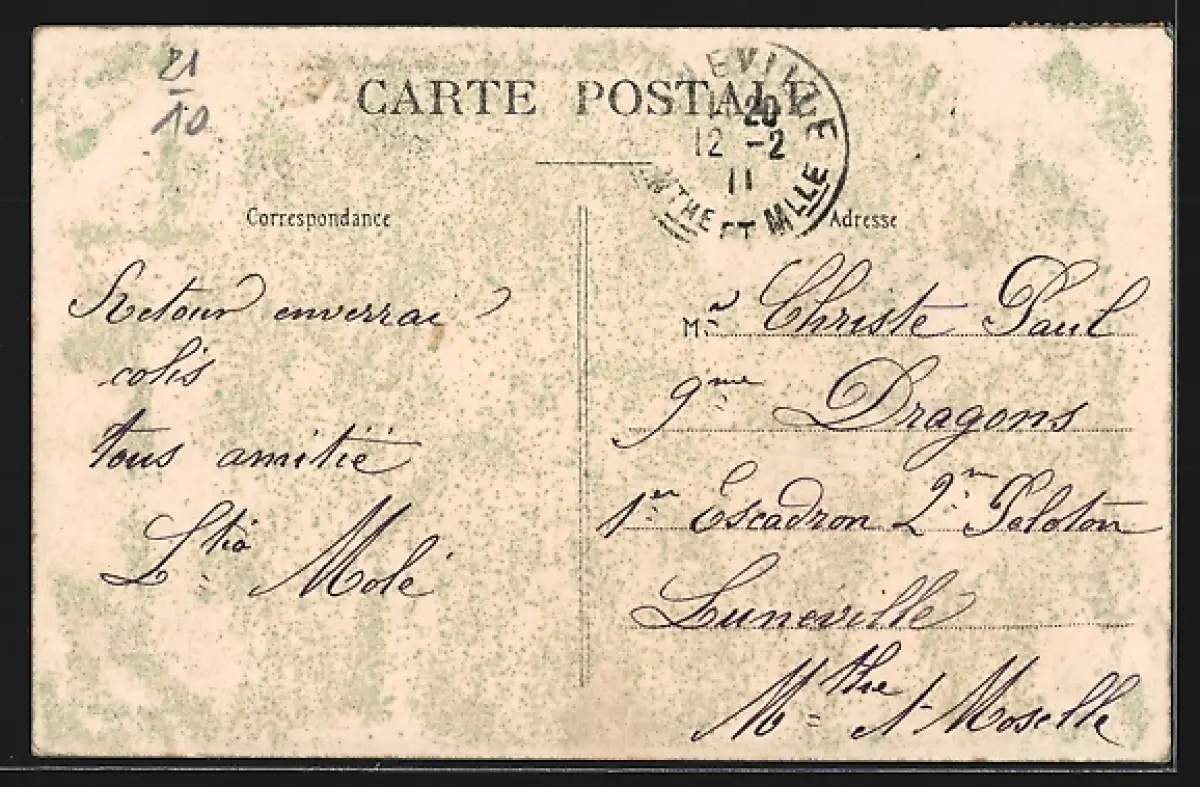 21
10
CARTE POSTALE
EVILLE
20
12 -2
11
MTHE ET MLLE
Correspondance
Adresse
Retour enverrai
colis
tous amitié
Molé
Mr Christe Paul
9me Dragons
1er Escadron 2me Peloton
Lunéville
Mthe & Moselle